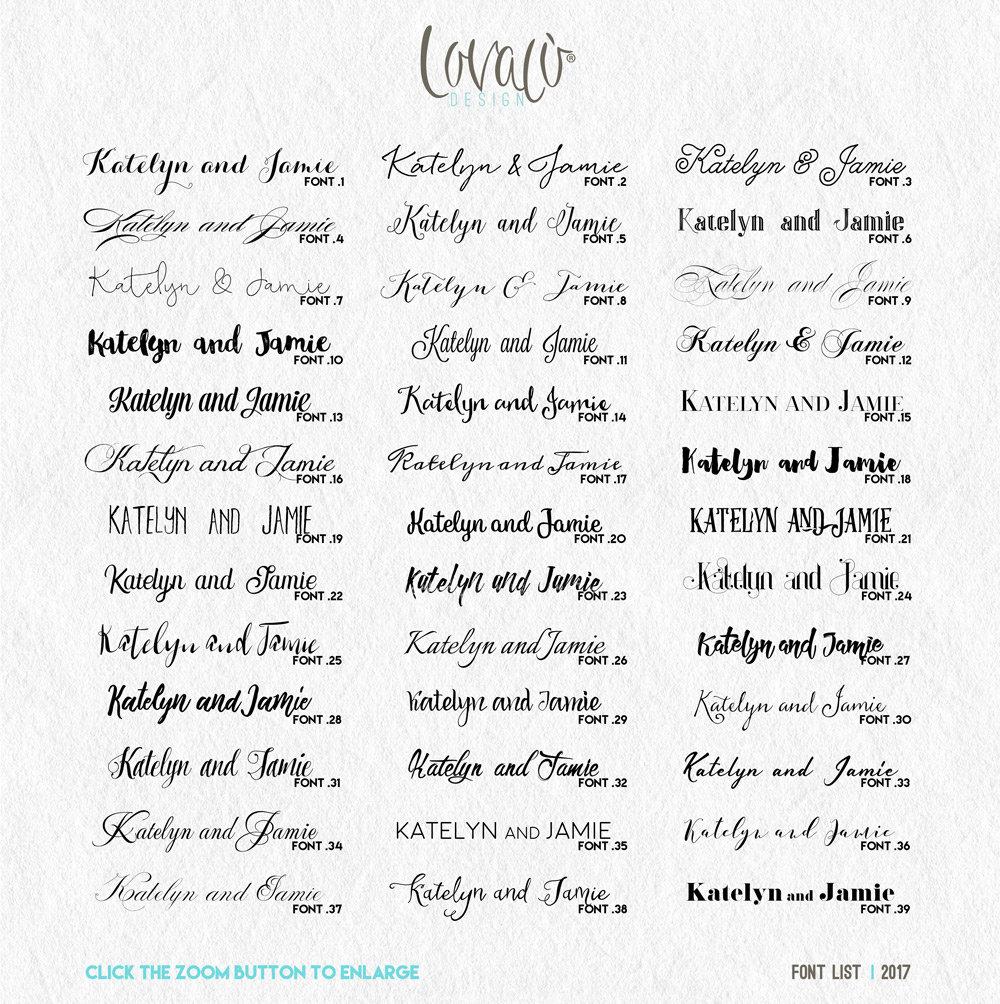 Lovalù®
DESIGN
Katelyn and Jamie
FONT .1
Katelyn & Jamie
FONT .2
Katelyn & Jamie
FONT .3
Katelyn and Jamie
FONT .4
Katelyn and Jamie
FONT .5
Katelyn and Jamie
FONT .6
Katelyn & Jamie
FONT .7
Katelyn & Jamie
FONT .8
Katelyn and Jamie
FONT .9
Katelyn and Jamie
FONT .10
Katelyn and Jamie
FONT .11
Katelyn & Jamie
FONT .12
Katelyn and Jamie
FONT .13
Katelyn and Jamie
FONT .14
KATELYN AND JAMIE
FONT .15
Katelyn and Jamie
FONT .16
Katelyn and Jamie
FONT .17
Katelyn and Jamie
FONT .18
KATELYN AND JAMIE
FONT .19
Katelyn and Jamie
FONT .20
KATELYN AND JAMIE
FONT .21
Katelyn and Jamie
FONT .22
Katelyn and Jamie
FONT .23
Katelyn and Jamie
FONT .24
Katelyn and Jamie
FONT .25
Katelyn and Jamie
FONT .26
Katelyn and Jamie
FONT .27
Katelyn and Jamie
FONT .28
Katelyn and Jamie
FONT .29
Katelyn and Jamie
FONT .30
Katelyn and Jamie
FONT .31
Katelyn and Jamie
FONT .32
Katelyn and Jamie
FONT .33
Katelyn and Jamie
FONT .34
KATELYN AND JAMIE
FONT .35
Katelyn and Jamie
FONT .36
Katelyn and Jamie
FONT .37
Katelyn and Jamie
FONT .38
Katelyn and Jamie
FONT .39
CLICK THE ZOOM BUTTON TO ENLARGE
FONT LIST | 2017